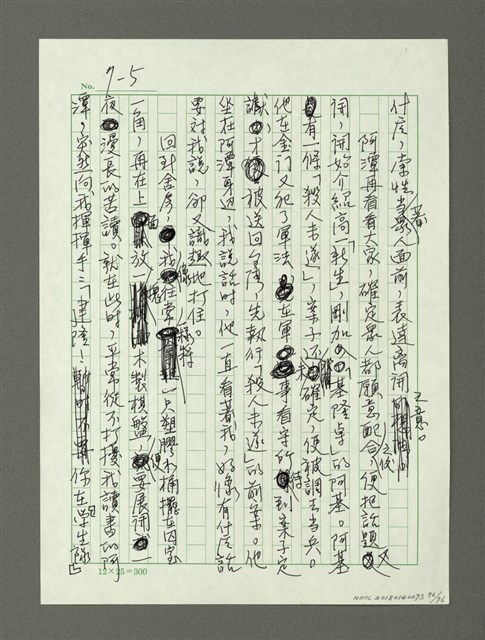 No. 7-5
什麼，索性當著眾人面前，表達離開之意。
阿潭再看看大家，確定眾人都願意配合之後，便把話題又
開，開始介紹高一「新生」，剛加入「基隆桌」的阿基。阿基
有一條「殺人未遂」，案子還未確定，便被調去當兵。
他在金門又犯了軍法，在軍事看守所待到案子定
讞，才被送回台灣，先執行「殺人未遂」的前案。他
坐在阿潭身邊，我說話時，他一直看著我，好像有什麼話
要對我說，卻又識趣地打住。
回到舍房，我像往常一樣將一只塑膠水桶擺在囚室
一角，再在上面放一塊木製棋盤，便要展開一
夜漫長的苦讀。就在此時，平常從不打擾我讀書的阿
潭，忽然向我揮揮手：「建隆！你在學生隊
12×25=300
NMTL20180140073 76/76